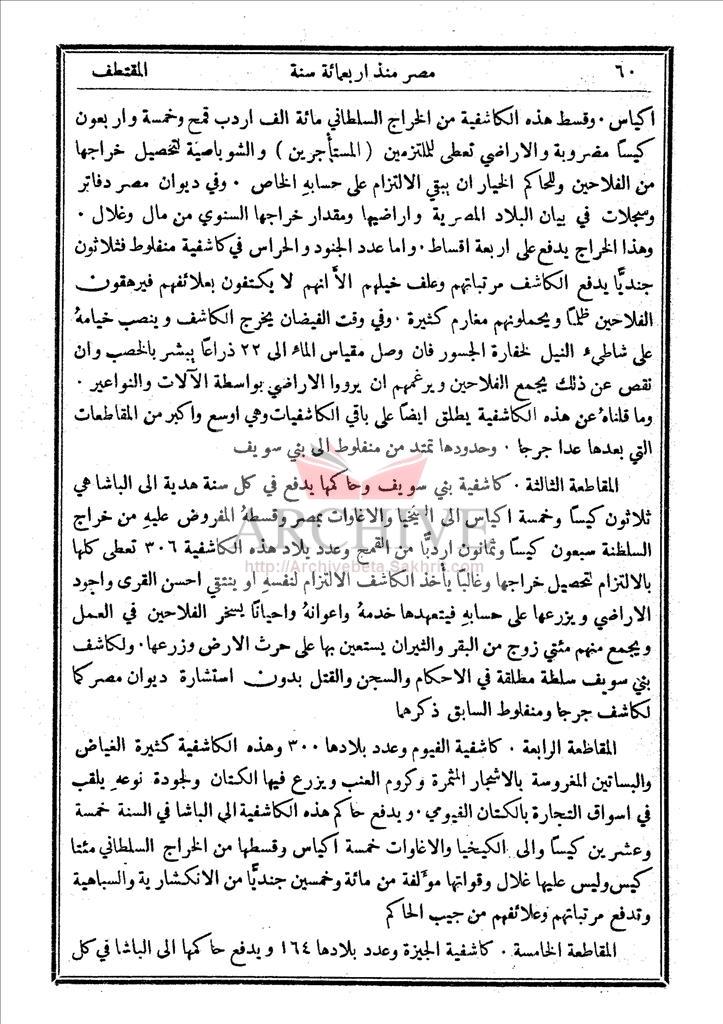 ٦٠ مصر منذ اربعمائة سنة المقتطف
اكياس . وقسط هذه الكاشفية من الخراج السلطاني مائة الف اردب قمح وخمسة واربعون
كيسًا مضروبة والاراضي تعطى للملتزمين ( المستأجرين ) والشوباصية لتحصيل خراجها
من الفلاحين وللحاكم الخيار ان يبقي الالتزام على حسابهِ الخاص . وفي ديوان مصر دفاتر
وسجلات في بيان البلاد المصرية واراضيها ومقدار خراجها السنوي من مال وغلال .
وهذا الخراج يدفع على اربعة اقساط . واما عدد الجنود والحراس في كاشفية منفلوط فثلاثون
جنديًّا يدفع الكاشف مرتباتهم وعلف خيلهم الاَّ انهم لا يكتفون بعلائفهم فيرهقون
الفلاحين ظلمًا ويحملونهم مغارم كثيرة . وفي وقت الفيضان يخرج الكاشف وينصب خيامهُ
على شاطيء النيل لخفارة الجسور فان وصل مقياس الماء الى ٢٢ ذراعًا يبشر بالخصب وان
نقص عن ذلك يجمع الفلاحين ويرغمهم ان يرووا الاراضي بواسطة الآلات والنواعير .
وما قلناهُ عن هذه الكاشفية يطلق ايضًا على باقي الكاشفيات وهي اوسع واكبر من المقاطعات
التي بعدها عدا جرجا . وحدودها تمتد من منفلوط الى بني سويف
المقاطعة الثالثة . كاشفية بني سويف وحاكمها يدفع في كل سنة هدية الى الباشا هي
ثلاثون كيسًا وخمسة اكياس الى الكيخيا والاغاوات بمصر وقسطهُ المفروض عليهِ من خراج
السلطنة سبعون كيسًا وثمانون اردبًّا من القمح وعدد بلاد هذه الكاشفية ٣٠٦ تعطى كلها
بالالتزام لتحصيل خراجها وغالبًا يأخذ الكاشف الالتزام لنفسهِ او ينتقي احسن القرى واجود
الاراضي ويزرعها على حسابهِ فيتعهدها خدمهُ واعوانهُ واحيانًا يسخر الفلاحين في العمل
ويجمع منهم مئتي زوج من البقر والثيران يستعين بها على حرث الارض وزرعها . ولكاشف
بني سويف سلطة مطلقة في الاحكام والسجن والقتل بدون استشارة ديوان مصر كما
لكاشف جرجا ومنفلوط السابق ذكرهما
المقاطعة الرابعة . كاشفية الفيوم وعدد بلادها ٣٠٠ وهذه الكاشفية كثيرة الغياض
والبساتين المغروسة بالاشجار المثمرة وكروم العنب ويزرع فيها الكتان ولجودة نوعهِ يلقب
في اسواق التجارة بالكتان الفيومي . ويدفع حاكم هذه الكاشفية الى الباشا في السنة خمسة
وعشرين كيسًا والى الكيخيا والاغاوات خمسة اكياس وقسطها من الخراج السلطاني مئتا
كيس وليس عليها غلال وقواتها موَّلفة من مائة وخمسين جنديًّا من الانكشارية والسباهية
وتدفع مرتباتهم وعلائفهم من جيب الحاكم
المقاطعة الخامسة . كاشفية الجيزة وعدد بلادها ١٦٤ ويدفع حاكمها الى الباشا في كل
ARCHIVE
http://Archivebeta.Sakhrit.com